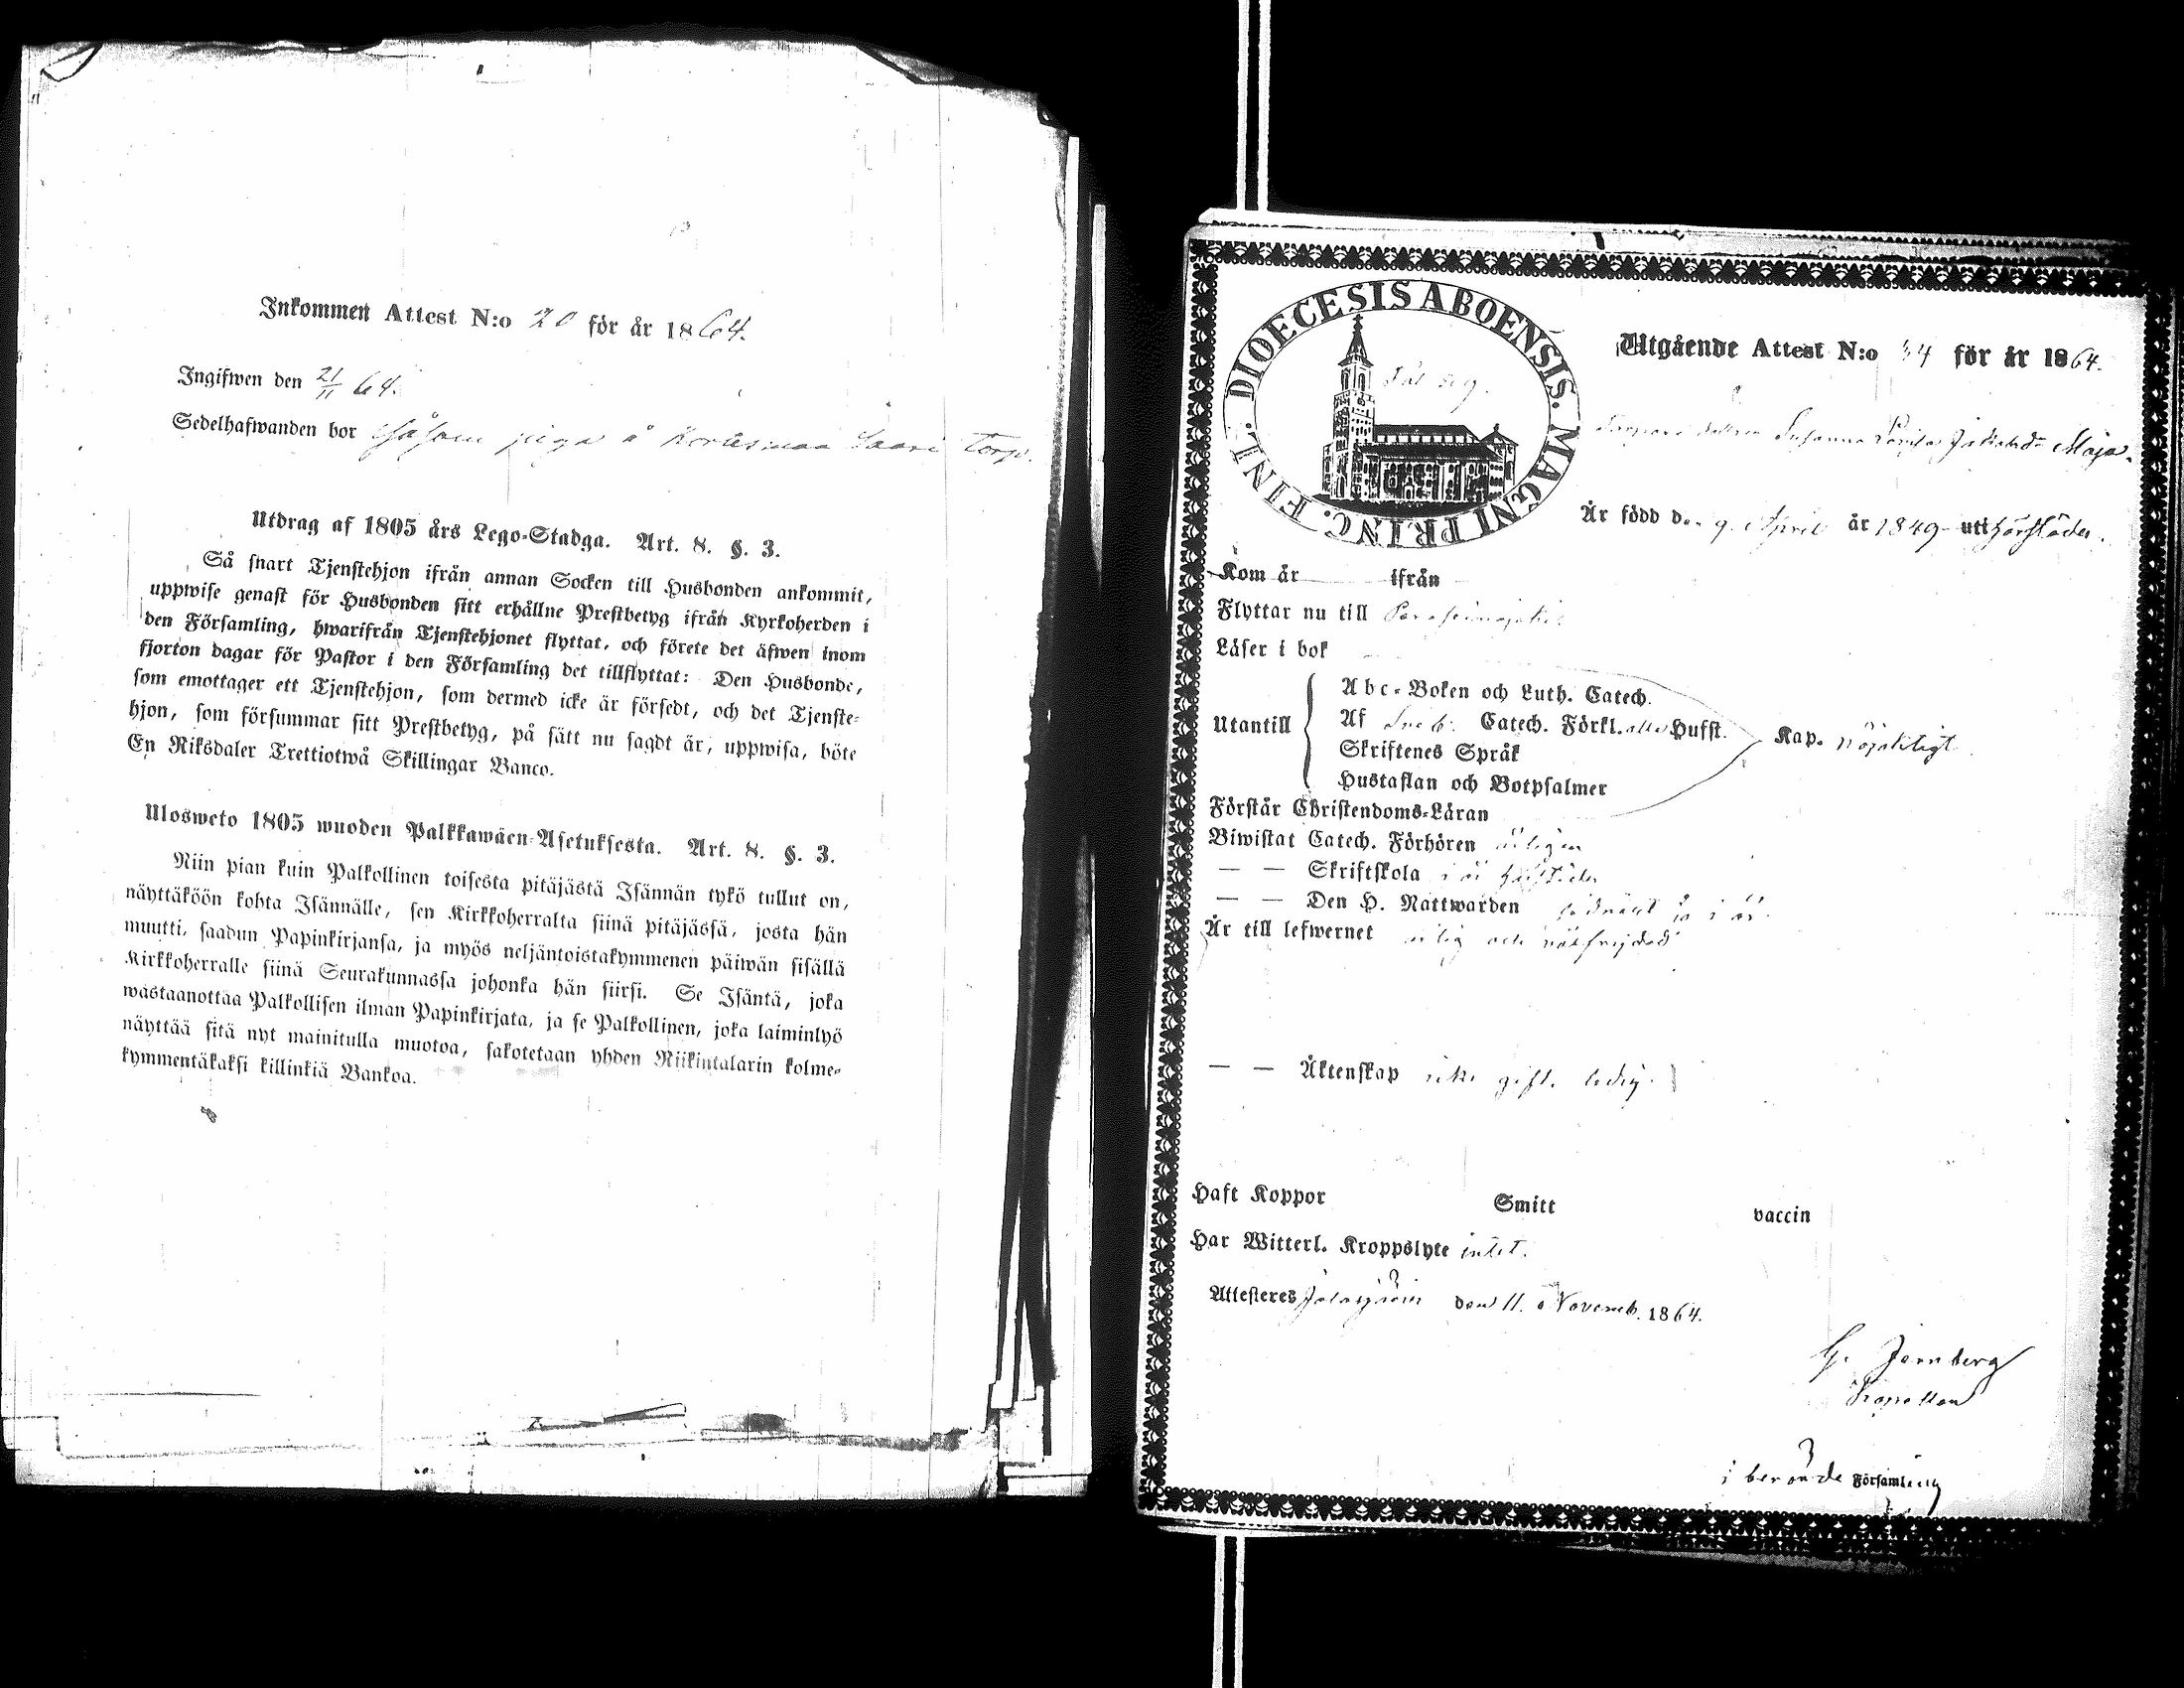 Inkommen Attest N:o 20 för år 1864.
Ingifwen den 21/11 64.
Sedelhafwanden bor såsom piga å Saari Torp.
Utdrag af 1805 års Lego-Stadga. Art. 8. §. 3.
Så snart Tjenstehjon ifrån annan Socken till Husbonden ankommit,
uppwise genast för Husbonden sitt erhållne Prestbetyg ifrån Kyrkoherden i
den Församling, hwarifrån Tjenstehjonet flyttat, och förete det äfwen inom
fjorton dagar för Pastor i den Församling det tillflyttat: Den Husbonde,
som emottager ett Tjenstehjon, som dermed icke är försedt, och det Tjenste-
hjon, som försummar sitt Prestbetyg, på sätt nu sagdt är, uppwisa, böte
En Riksdaler Trettiotwå Skillingar Banco.
Ulosweto 1805 wuoden Palkkawäen-Asetuksesta. Art. 8. §. 3.
Niin pian kuin Palkollinen toisesta pitäjästä Isännän tykö tullut on,
näyttäköön kohta Isännälle, sen Kirkkoherralta siinä pitäjässä, josta hän
muutti, saadun Papinkirjansa, ja myös neljäntoistakymmenen päiwän sisällä
Kirkkoherralle siinä Seurakunnassa johonka hän siirsi. Se Isäntä, joka
wastaanottaa Palkollisen ilman Papinkirjata, ja se Palkollinen, joka laiminlyö
näyttää sitä nyt mainitulla muotoa, sakotetaan yhden Riikintalarin kolme-
kymmentäkaksi killinkiä Bankoa.
DIOECESIS ABOENSIS. MAGNI PRINC. FINL.
Utgående Attest N:o 34 för år 1864.
dottren Susanna Lovisa Maja.
Är född d. 9 April år 1849 uti
Kom år ifrån
Flyttar nu till
Läser i bok
Utantill
Abc-Boken och Luth. Catech.
Af Sveb. Catech. Förkl. alla Hufst.
Skriftenes Språk
Hustaflan och Botpsalmer
Kap. nöjaktigt
Förstår Christendoms-Läran
Biwistat Catech. Förhören årligen
— — Skriftskola i år
— — Den H. Nattwarden i år.
Är till lefwernet ärlig och välfrejdad
— — Äktenskap icke gift. ledig.
Haft Koppor Smitt vaccin
Har Witterl. Kroppslyte intet.
Attesteras Jalasjärvi den 11. Novemb. 1864.
G. Jernberg
Kapellan
i berörde Församling